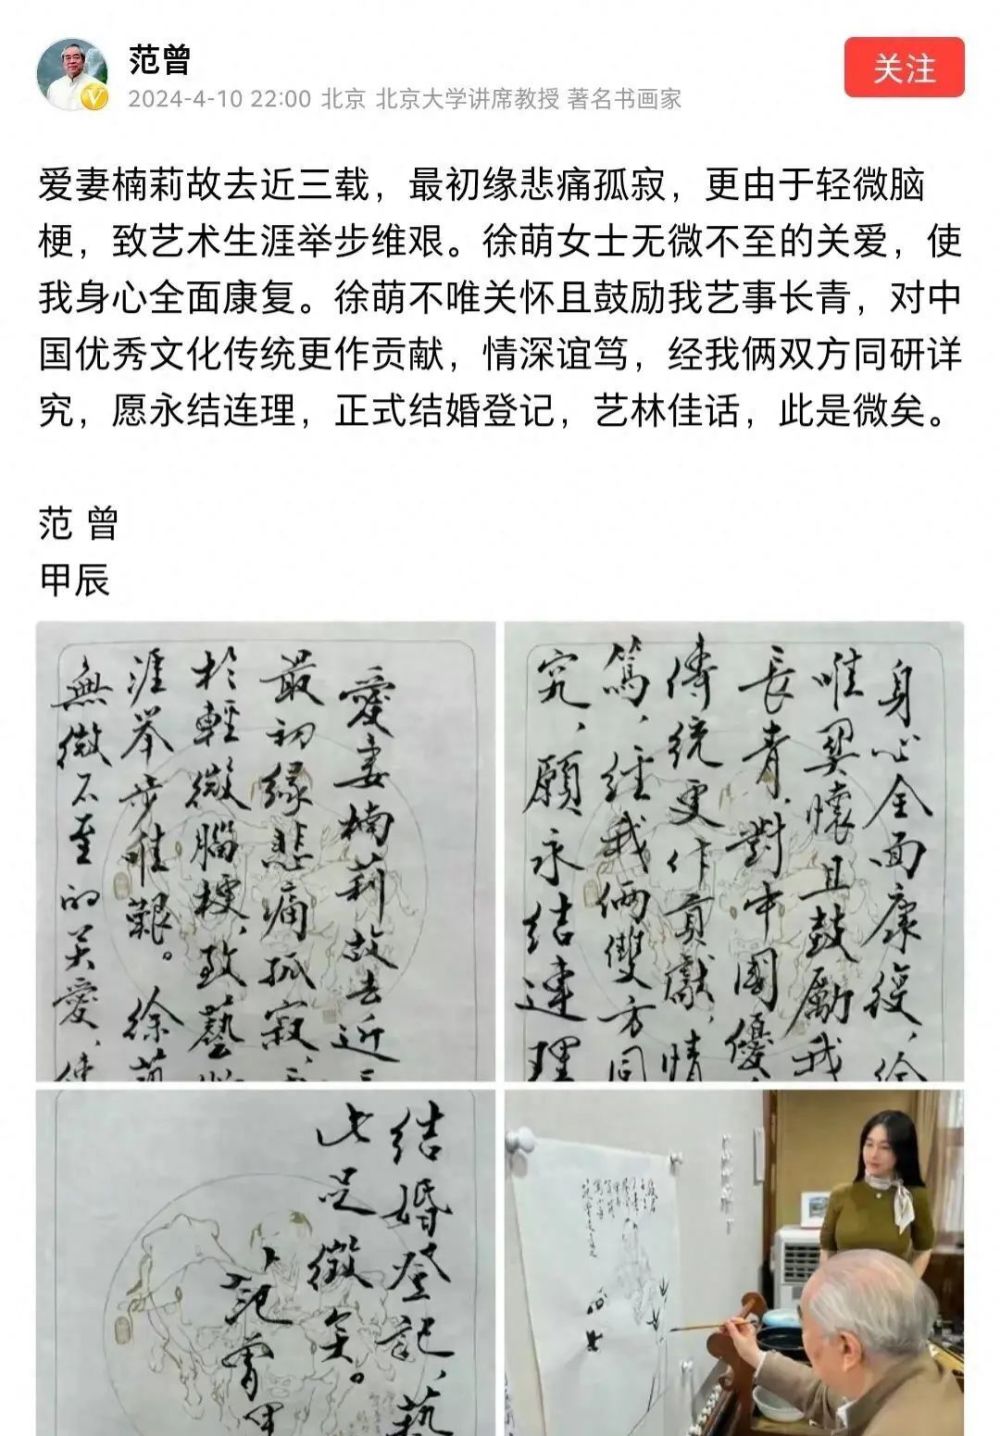 范曾
关注
2024-4-10 22:00 北京 北京大学讲席教授 著名书画家
爱妻楠莉故去近三载，最初缘悲痛孤寂，更由于轻微脑
梗，致艺术生涯举步维艰。徐萌女士无微不至的关爱，使
我身心全面康复。徐萌不唯关怀且鼓励我艺事长青，对中
国优秀文化传统更作贡献，情深谊笃，经我俩双方同研详
究，愿永结连理，正式结婚登记，艺林佳话，此是微矣。
范 曾
甲辰
愛妻楠莉故去近
最初緣悲痛孤寂，
於輕微腦梗，致藝
涯举步唯艱。徐萌
無微不至的关愛，使
身心全面康復，徐
唯関懷且鼓勵我
長青，對中國優
傳統更作貢獻，情
篤，經我俩雙方同
究，願永结連理
结婚登记，藝
此是微矣。
范曾甲